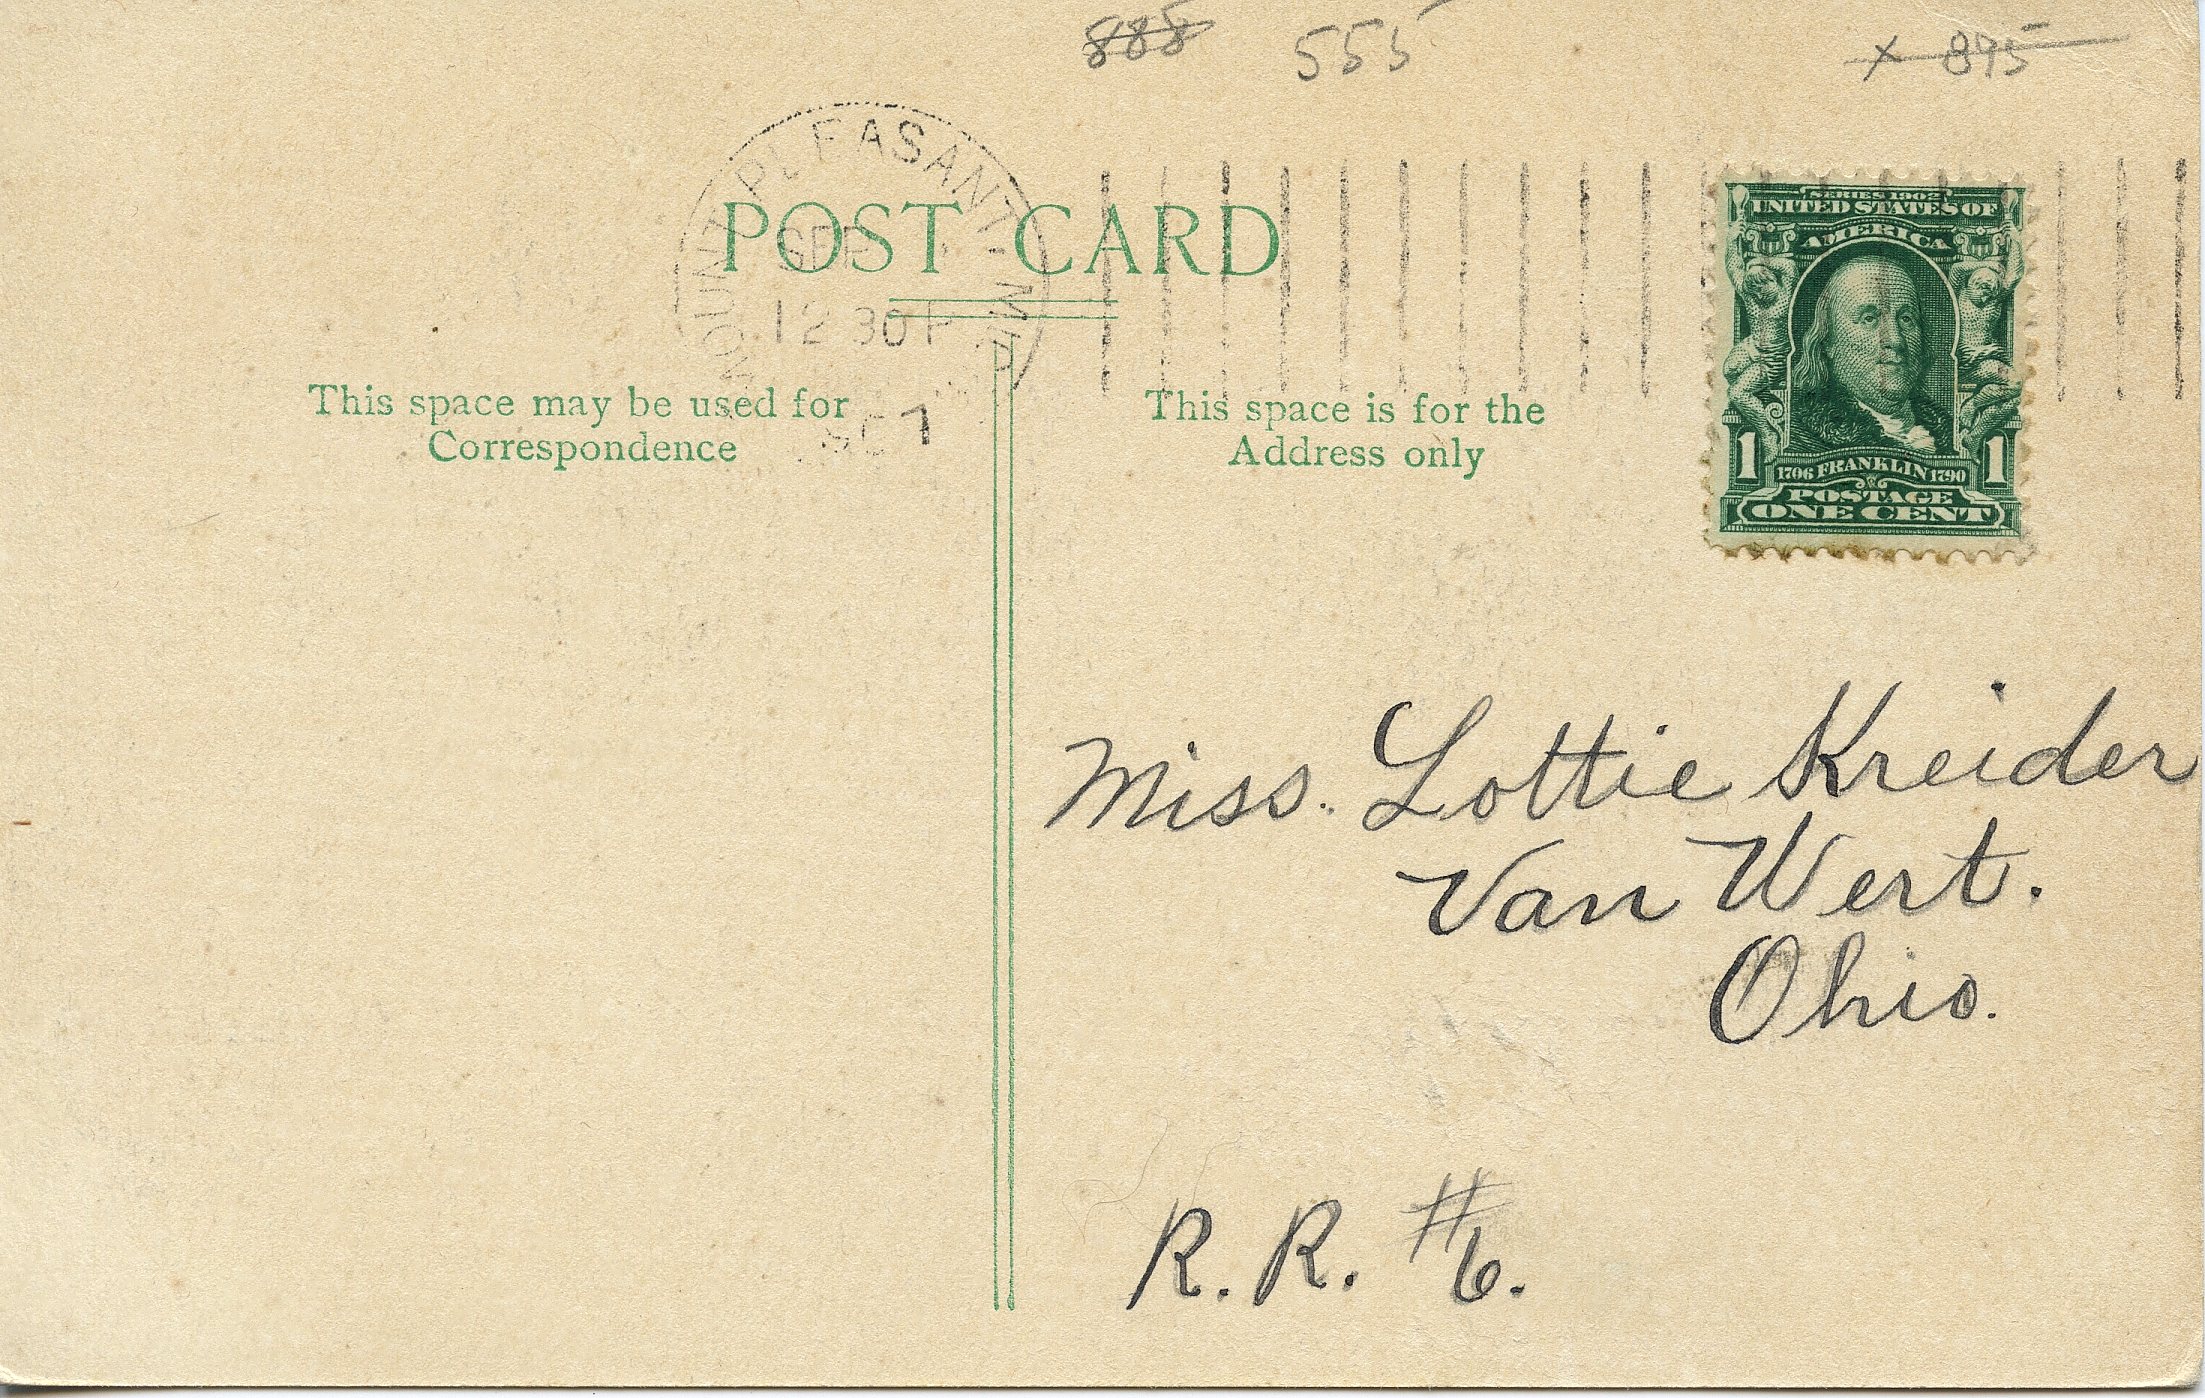 888 555 x 895
MOUNT PLEASANT, MICH
SEP
12 30 P
POST CARD
This space may be used for
Correspondence
This space is for the
Address only
SERIES 1902
UNITED STATES OF
AMERICA
1 1
1706 FRANKLIN 1790
POSTAGE
ONE CENT
Miss. Lottie Kreider
Van Wert.
Ohio.
R. R. #6.